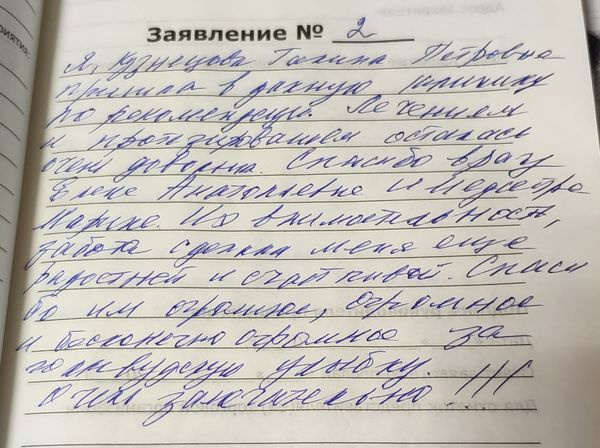 Заявление № 2
Я, Кузнецова Галина Петровна
пришла в данную клинику
по рекомендации. Лечением
и протезированием осталась
очень довольна. Спасибо врачу
Елене Анатольевне и медсестре
Марине. Их внимательность,
забота сделали меня ещё
радостней и счастливой. Спаси
бо им огромное, огромное
и бесконечно огромное за
голливудскую улыбку.
Очень замечательно!!!